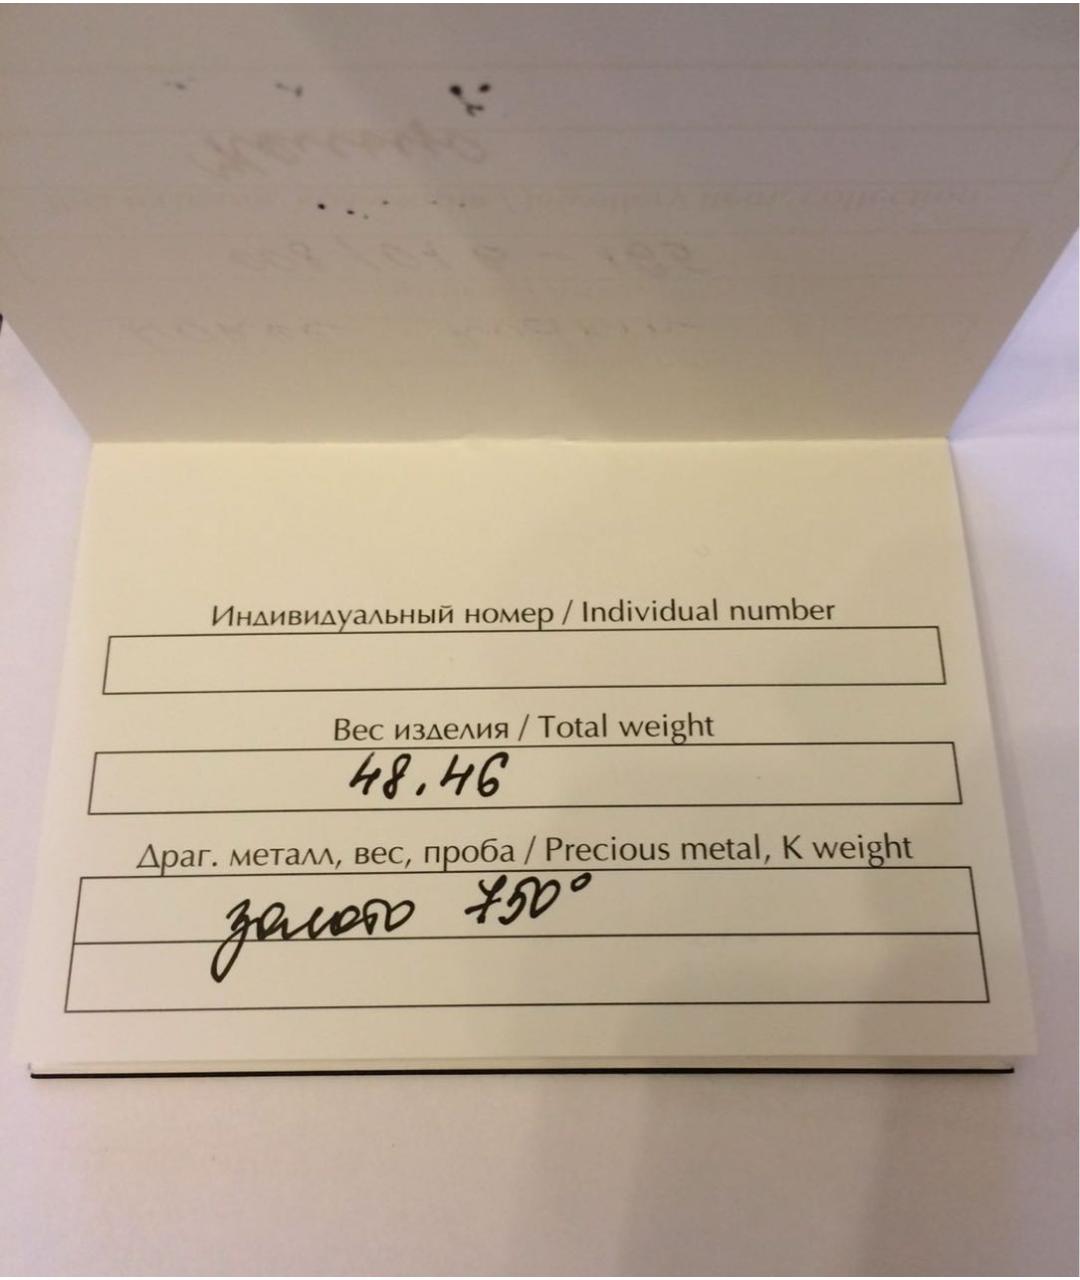 Индивидуальный номер / Individual number
Вес изделия / Total weight
48.46
Драг. металл, вес, проба / Precious metal, K weight
золото 750°